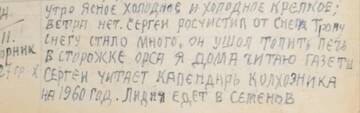 утро ясное холодное и холодное крепкое;
11. ветра нет. Сергеи росчистил от снега тропу
снегу стало много. он ушол топить печь
в сторожке орса я дома читаю газеты
Сергеи читает календарь колхозника
на 1960 год. Лидия едет в Семенов